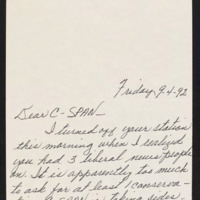 Friday, 9-4-92
Dear C-SPAN -
I turned off your station
this morning when I realized
you had 3 liberal news people
on. It is apparently too much
to ask for at least 1 conserva-
is taking sides